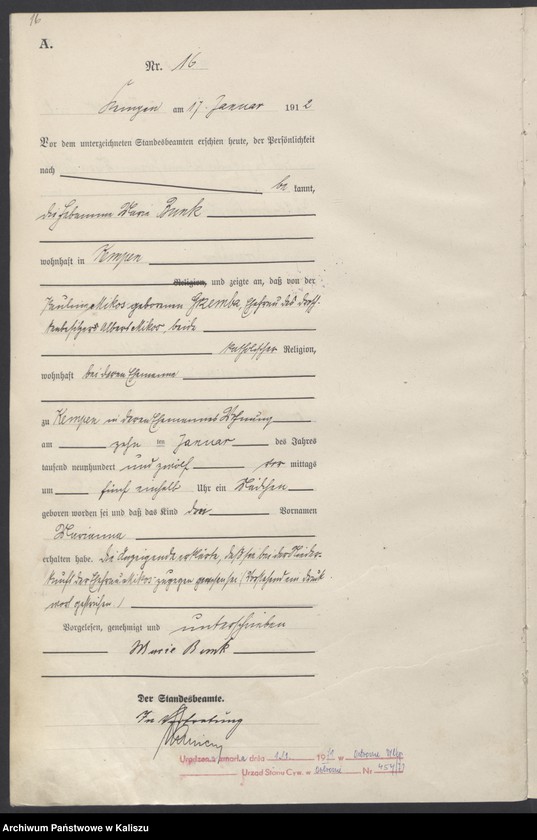 16
A.
Nr. 16
Kempen am 17. Januar 1912
Vor dem unterzeichneten Standesbeamten erschien heute, der Persönlichkeit
nach be kannt,
die Hebamme Marie Bunk
wohnhaft in Kempen
Religion, und zeigte an, daß von der
Mikos geborenen Grzemba, Ehefrau des
Albert Mikos, beide
katholischer Religion,
wohnhaft bei deren Ehemanne
zu Kempen in deren Ehemannes Wohnung
am zehn ten Januar des Jahres
tausend neunhundert und zwölf vor mittags
um fünf einhalb Uhr ein Mädchen
geboren worden sei und daß das Kind den Vornamen
Marianna
erhalten habe. Die Anzeigende erklärte, daß sie bei der Nieder-
kunft der Ehefrau Mikos zugegen gewesen sei (Vorstehend ein Druck
wort gestrichen.)
Vorgelesen, genehmigt und unterschrieben
Marie Bunk
Der Standesbeamte.
In Vertretung
zmarła dnia 19 w Ostrowie Wlkp
Urząd Stanu Cyw. w Ostrowie Nr
Archiwum Państwowe w Kaliszu